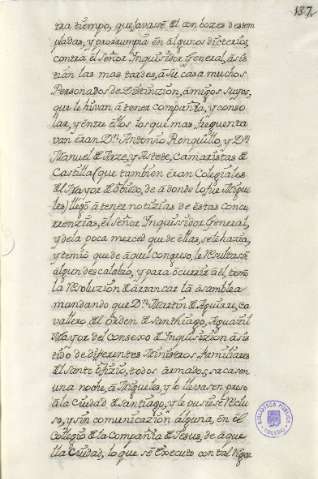 137.
tra tiempo, que
y prorrumpia en algunos dicterios,
contra el Señor Inquisidor General, asis-
tian las mas tardes, a su casa muchos
Personados de Distinzion, amigos suyos,
que le hivan a tener compañia, y conso
lar, y entre ellos los que mas frequenta
van eran Dn. Antonio Ronquillo, y Dn.
Manuel Camaristas de
Castilla (que tambien eran Colegiales
Mayor de Obiedo, de a donde lo fue Migue
les) llegó a tener notizias de estas concu
rrenzias, el Señor Inquissidor General,
y de la poca merced que de ellas, se le hazia,
y temio que de aquel congreso, le resultase
algun descalabro, y para ocurrir a el, tomó
la resoluzion de arrancar la asamblea
mandando que Dn. Martin de Aguirre, ca
vallero del orden de Santhiago, Aguazil
Mayor del consexo de Inquisizion asis
tido de diferentes Ministros familiares
del Santo Ofizio, todos armados, sacasen
una noche, a Migueles, y le llevasen preso
a la Ciudad de Santiago, y le pusiesen reclu
so, y sin comunicazion alguna, en el
Collegio de la Compañia de Jesus, de aque
lla Ciudad, lo que se executo con tal rigor